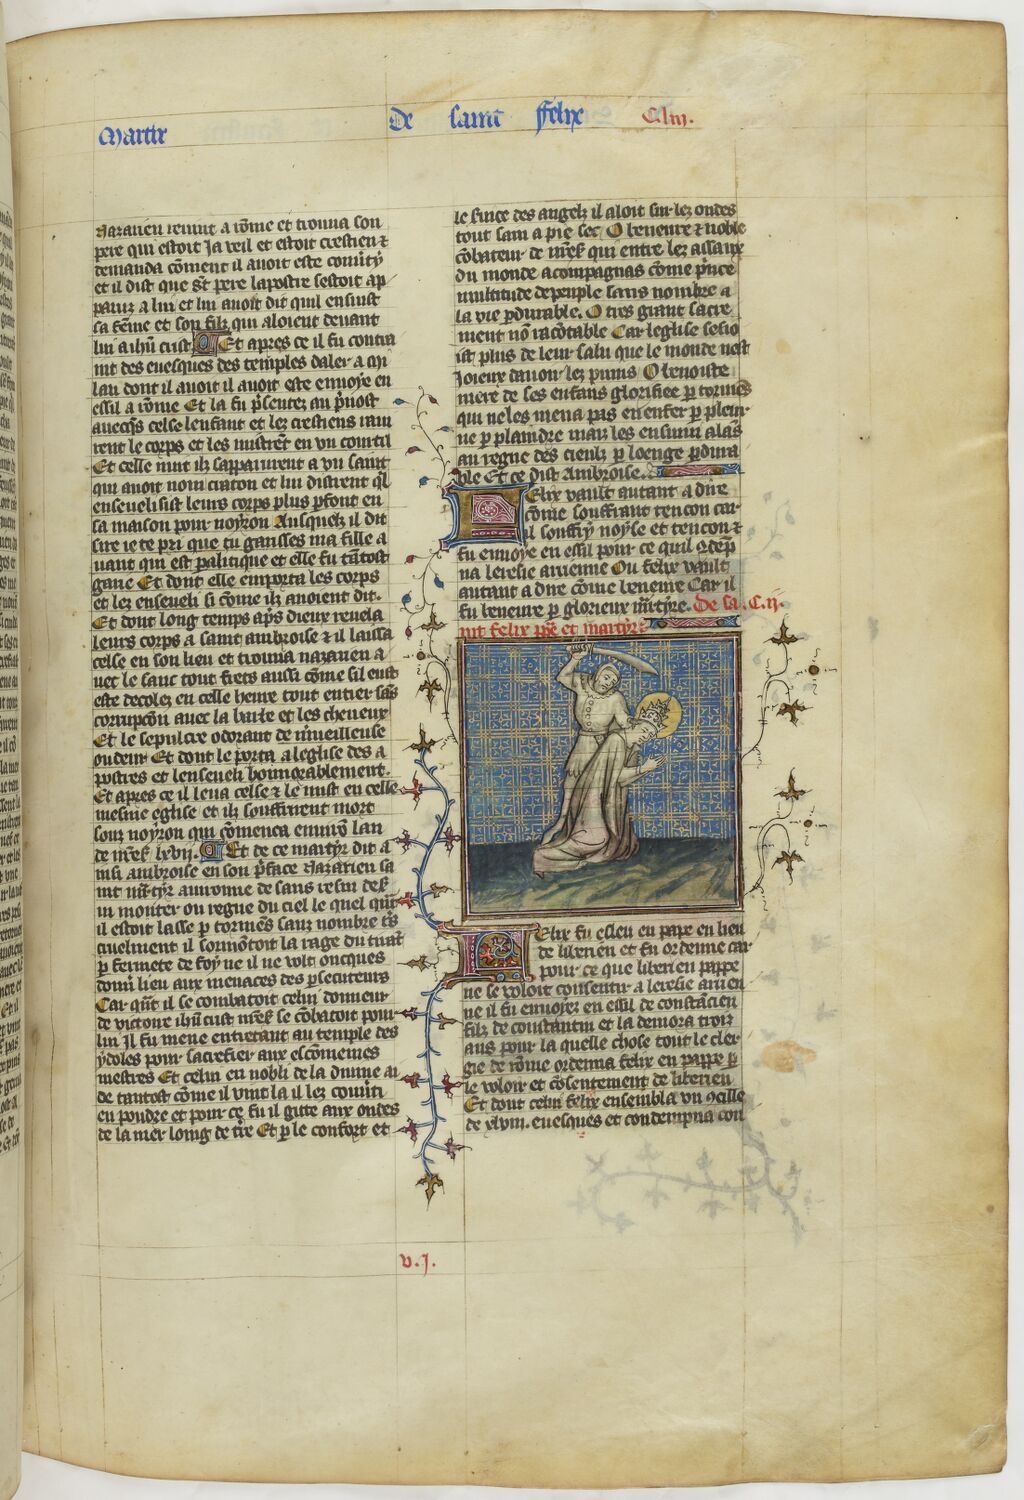 Martir De saint Felix C.liii.
Nazarien reuint a rōme et trouua son
pere qui estoit Ja veil et estoit crestien ⁊
demanda cōment il auoit este cōuerty
et il dist que st pere lapostre sestoit ap
paruz a lui et lui auoit dit quil ensuist
sa fēme et son filz qui aloient deuant
lui a ihū crist Et apres ce il fu contra
int des euesques des temples daler a mi
lan dont il auoit il auoit este enuoye en
essil a rōme Et la fu p̄sentez au p̄uost
auecq̄s celse lenfant et lez crestiens raui
rent le corps et les mistrēt en vn courtil
Et celle nuit ilz sapparurent a vn saint
qui auoit nom ciraton et lui distrent q̄l
enseuelisist leurs corps plus p̄font en
sa maison pour noyron Ausquelz il dit
sire ie te pri que tu garisses ma fille a
uant qui est palitique et elle fu tātost
garie Et dont elle emporta les corps
et lez enseueli si cōme ilz auoient dit.
Et dont long temps ap̄s dieux reuela
leurs corps a saint ambroise ⁊ il laissa
celse en son lieu et trouua nazarien a
uec le sanc tout frets aussi cōme sil eust
este decolez en celle heure tout entier sās
corrupcōn auec la barbe et les cheueux
Et le sepulcre odorant de m̄ueilleuse
oudeur Et dont le porta a leglise des a
postres et lenseueli hounorablement.
Et apres ce il leua celse ⁊ le mist en celle
mesme eglise et ilz souffrirent mort
souz noyron qui cōmenca enuirō lan
de nr̄eß lvij. Et de ce martyr dit a
insi ambroise en son p̄face Nazarien sa
int
in monter ou regne du ciel le quel quāt
il estoit lasse p tormēs sanz nombre
cruelment il sormōtoit la rage du tirāt
p fermete de foy ne il ne volt oncques
donn̄ lieu aux menaces des p̄secuteurs
Car quāt il se combatoit celui donneur
de victoire ihū crist se cōbatoit pour
lui Il fu mene entretant au temple des
ydoles pour sacrefier aux escōmenies
mestres Et celui en nobli de la diuine
de tantost cōme il vint la il lez cōuerti
en poudre et pour ce fu il gitte aux ondes
de la mer loing de tr̄e Et p le confort et
le seruice des angelz il aloit sur lez ondes
tout sain a pie sec O beneure ⁊ noble
cōbateur qui entre lez assaux
du monde acompagnas cōme p̄nce
multitude de peuple sans nombre a
la vie p̄durable. O tres grant sacre
ment nō racōtable Car leglise sesio
ist plus de leur salu que le monde nest
Joieux dauoir lez punis O benoiste
mere de ses enfans glorifiee p tormēs
qui ne les mena pas en enfer p pleur
ne p plaindre maiz les ensuiui alās
au regne des cieulx p loenge p̄dura
ble Et ce dist Ambroise.
Felix vault autant a dire
cōme souffrant tencon car
il souffry noyse et tencon ⁊
fu enuoye en essil pour ce quil 9dēp
na leresie arrienne Ou felix vault
autant a dire cōme beneure Car il
fu beneure p glorieux m̄tyre. De sa .C.ij.
int felix p̄re et martyre
Felix fu esleu en pape en lieu
de liberien et fu ordenne car
pour ce que liberien pappe
ne se voloit consentir a leresie arrien
ne il fu enuoyez en essil de constācien
filz de constantin et la demora troiz
ans pour la quelle chose tout le cler
gie de rōme ordenna felix en pappe p
le voloir et cōsentement de liberien
Et dont celui felix ensembla vn 9cille
de xlviii. euesques et condempna con
v.j.